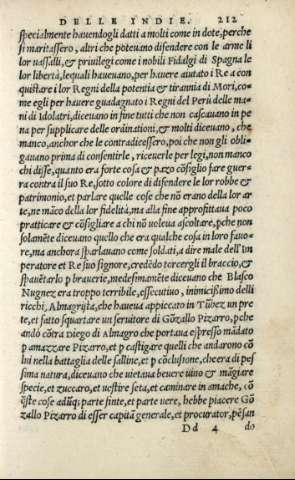 DELLE INDIE. 212
specialmente havendogli datti a molti come in dote, perche
si maritassero, altri che poteuano difendere con le arme li
lor uassalli, & priuilegi come i nobili Fidalgi di Spagna le
lor libertà, lequali haueuano, per hauere aiutato i Re a con
quistare i lor Regni della potentia & tirannia di Mori, co=
me egli per hauere guadagnato i Regni del Perù delle ma=
ni di Idolatri, diceuano in fine tutti che non cascauano in pe
na per supplicare delle ordinationi, & molti diceuano, che
manco, anchor che le contradicessero, poi che non gli obli=
gauano prima di consentirle, riceuerle per legi, non manco
chi disse, quanto era forte cosa & pazo cōsiglio fare guer=
ra contra il suo Re, sotto colore di difendere le lor robbe &
patrimonio, et parlare quelle cose che nō erano della lor ar
te, ne māco della lor fidelità, ma alla fine approfittaua poco
praticare & cōsigliare a chi nō voleua ascoltare, pche non
solamēte diceuano quello che era qualche cosa in loro fauo=
re, ma anchora sparlauano come soldati, a dire male dell'im
peratore et Re suo signore, credēdo torcergli il braccio, &
spauētarlo p brauerie, medesimamēte diceuano che Blasco
Nugnez era troppo terribile, essecutiuo, inimicissimo delli
ricchi, Almagrista, che haueua appiccato in Tūbez un pre
te, et fatto squartare un seruatore di Gōzallo Pizarro, pche
andò cōtra Diego di Almagro che portaua espresso mādato
p amazzare Pizarro, et p castigare quelli che andarono cō
lui nella battaglia delle salline, et p cōclusione, che era di pes
sima natura, diceuano che uietaua beuere uino & māgiare
specie, et zuccaro, et uestire seta, et caminare in amache, cō
q̄ste cose adūq; parte finte, et parte uere, hebbe piacere Gō
zallo Pizarro di esser capitā generale, et procurator, pēsan
Dd 4 do